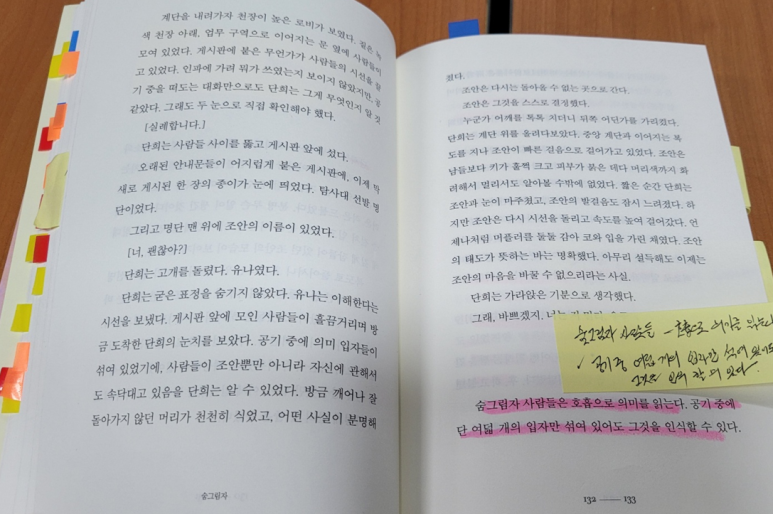 계단을 내려가자 천장이 높은 로비가 보였다. 짙은 녹
색 천장 아래, 업무 구역으로 이어지는 문 옆에 사람들이
모여 있었다. 게시판에 붙은 무언가가 사람들의 시선을 끌
고 있었다. 인파에 가려 뭐가 쓰였는지 보이지 않았지만, 공
기 중을 떠도는 대화만으로도 단희는 그게 무엇인지 알 것
같았다. 그래도 두 눈으로 직접 확인해야 했다.
[실례합니다.]
단희는 사람들 사이를 뚫고 게시판 앞에 섰다.
오래된 안내문들이 어지럽게 붙은 게시판에, 이제 막
새로 게시된 한 장의 종이가 눈에 띄었다. 탐사대 선발 명
단이었다.
그리고 명단 맨 위에 조안의 이름이 있었다.
[너, 괜찮아?]
단희는 고개를 돌렸다. 유나였다.
단희는 굳은 표정을 숨기지 않았다. 유나는 이해한다는
시선을 보냈다. 게시판 앞에 모인 사람들이 흘끔거리며 방
금 도착한 단희의 눈치를 보았다. 공기 중에 의미 입자들이
섞여 있었기에, 사람들이 조안뿐만 아니라 자신에 관해서
도 속닥대고 있음을 단희는 알 수 있었다. 방금 깨어나 잘
돌아가지 않던 머리가 천천히 식었고, 어떤 사실이 분명해
숨그림자
졌다.
조안은 다시는 돌아올 수 없는 곳으로 간다.
조안은 그것을 스스로 결정했다.
누군가 어깨를 톡톡 치더니 뒤쪽 어딘가를 가리켰다.
단희는 계단 위를 올려다보았다. 중앙 계단과 이어지는 복
도를 지나 조안이 빠른 걸음으로 걸어가고 있었다. 조안은
남들보다 키가 훌쩍 크고 피부가 붉은 데다 머리색까지 화
려해서 멀리서도 알아볼 수밖에 없었다. 짧은 순간 단희는
조안과 눈이 마주쳤고, 조안의 발걸음도 잠시 느려졌다. 하
지만 조안은 다시 시선을 돌리고 속도를 높여 걸어갔다. 언
제나처럼 머플러를 둘둘 감아 코와 입을 가린 채였다. 조안
의 태도가 뜻하는 바는 명확했다. 아무리 설득해도 이제는
조안의 마음을 바꿀 수 없으리라는 사실.
단희는 가라앉은 기분으로 생각했다.
그래, 바쁘겠지.
숨그림자 사람들 호흡으로 의미를 읽는다
공기 중 여덟 개의 입자만 섞여 있어도
그것을 인식 할 수 있다.
숨그림자 사람들은 호흡으로 의미를 읽는다. 공기 중에
단 여덟 개의 입자만 섞여 있어도 그것을 인식할 수 있다.
132 — 133